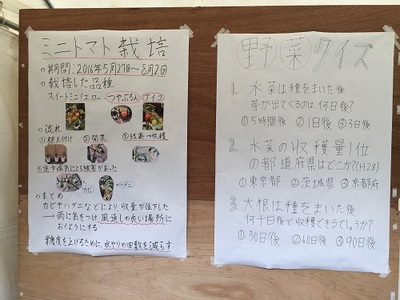 ミニトマト栽培
○期間:2016年5月27日〜8月2日
○栽培した品種
スイートミニイエロー つやぷるん アイコ
○流れ
①植え付け ②開花 ③結実→収穫
カビ
○まとめ
カビやハダニなどにより収量が低下した
→雨に気をつけ風通しの良い場所に
おくようにする
糖度を上げるために、水やりの回数を減らす
野菜クイズ
1. 水菜は種をまいた後
芽が出てくるのは何日後?
①5時間後 ②1日後 ③3日後
2. 水菜の収穫量1位
の都道府県はどこか?(H28)
①東京都 ②茨城県 ③京都府
3. 大根は種をまいた後
何十日後で収穫できるでしょうか?
①30日後 ②60日後 ③90日後